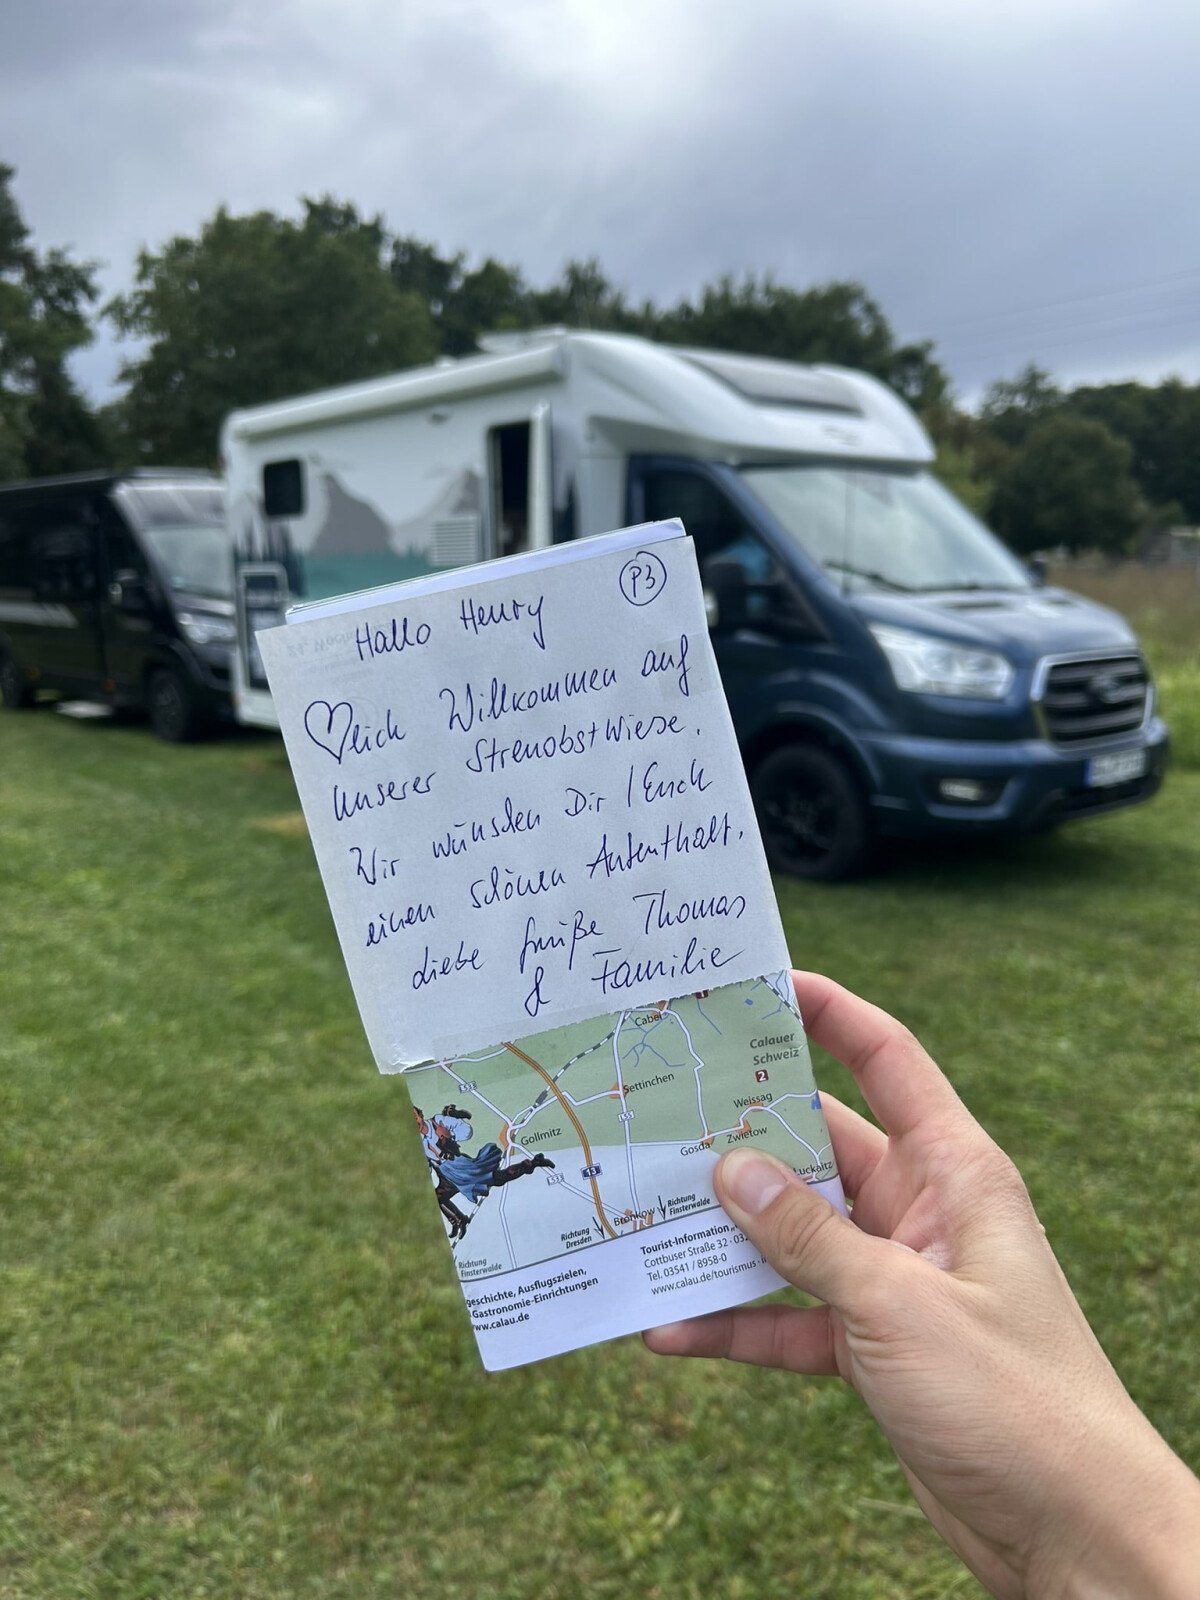 P3
Hallo Henry
♡lich Willkommen auf
unserer Streuobstwiese.
Wir wünschen Dir / Euch
einen schönen Aufenthalt.
Liebe Grüße Thomas
& Familie
Cabel
1
Calauer
Schweiz
2
Settinchen
L53
L55
Weissag
Gollmitz
Zwietow
Gosda
Luckaitz
13
L53
Bronkow
Richtung
Finsterwalde
Richtung
Dresden
Richtung
Finsterwalde
Tourist-Information
Cottbuser Straße 32 · 032
Tel. 03541 / 8958-0
www.calau.de/tourismus
geschichte, Ausflugszielen,
Gastronomie-Einrichtungen
www.calau.de